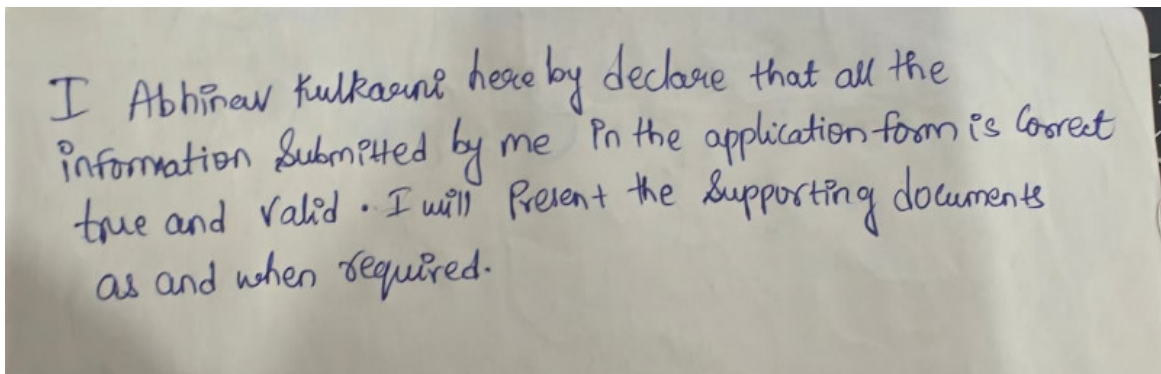 I Abhinav Kulkarni here by declare that all the
information Submitted by me in the application form is Correct
true and Valid. I will Present the Supporting documents
as and when required.